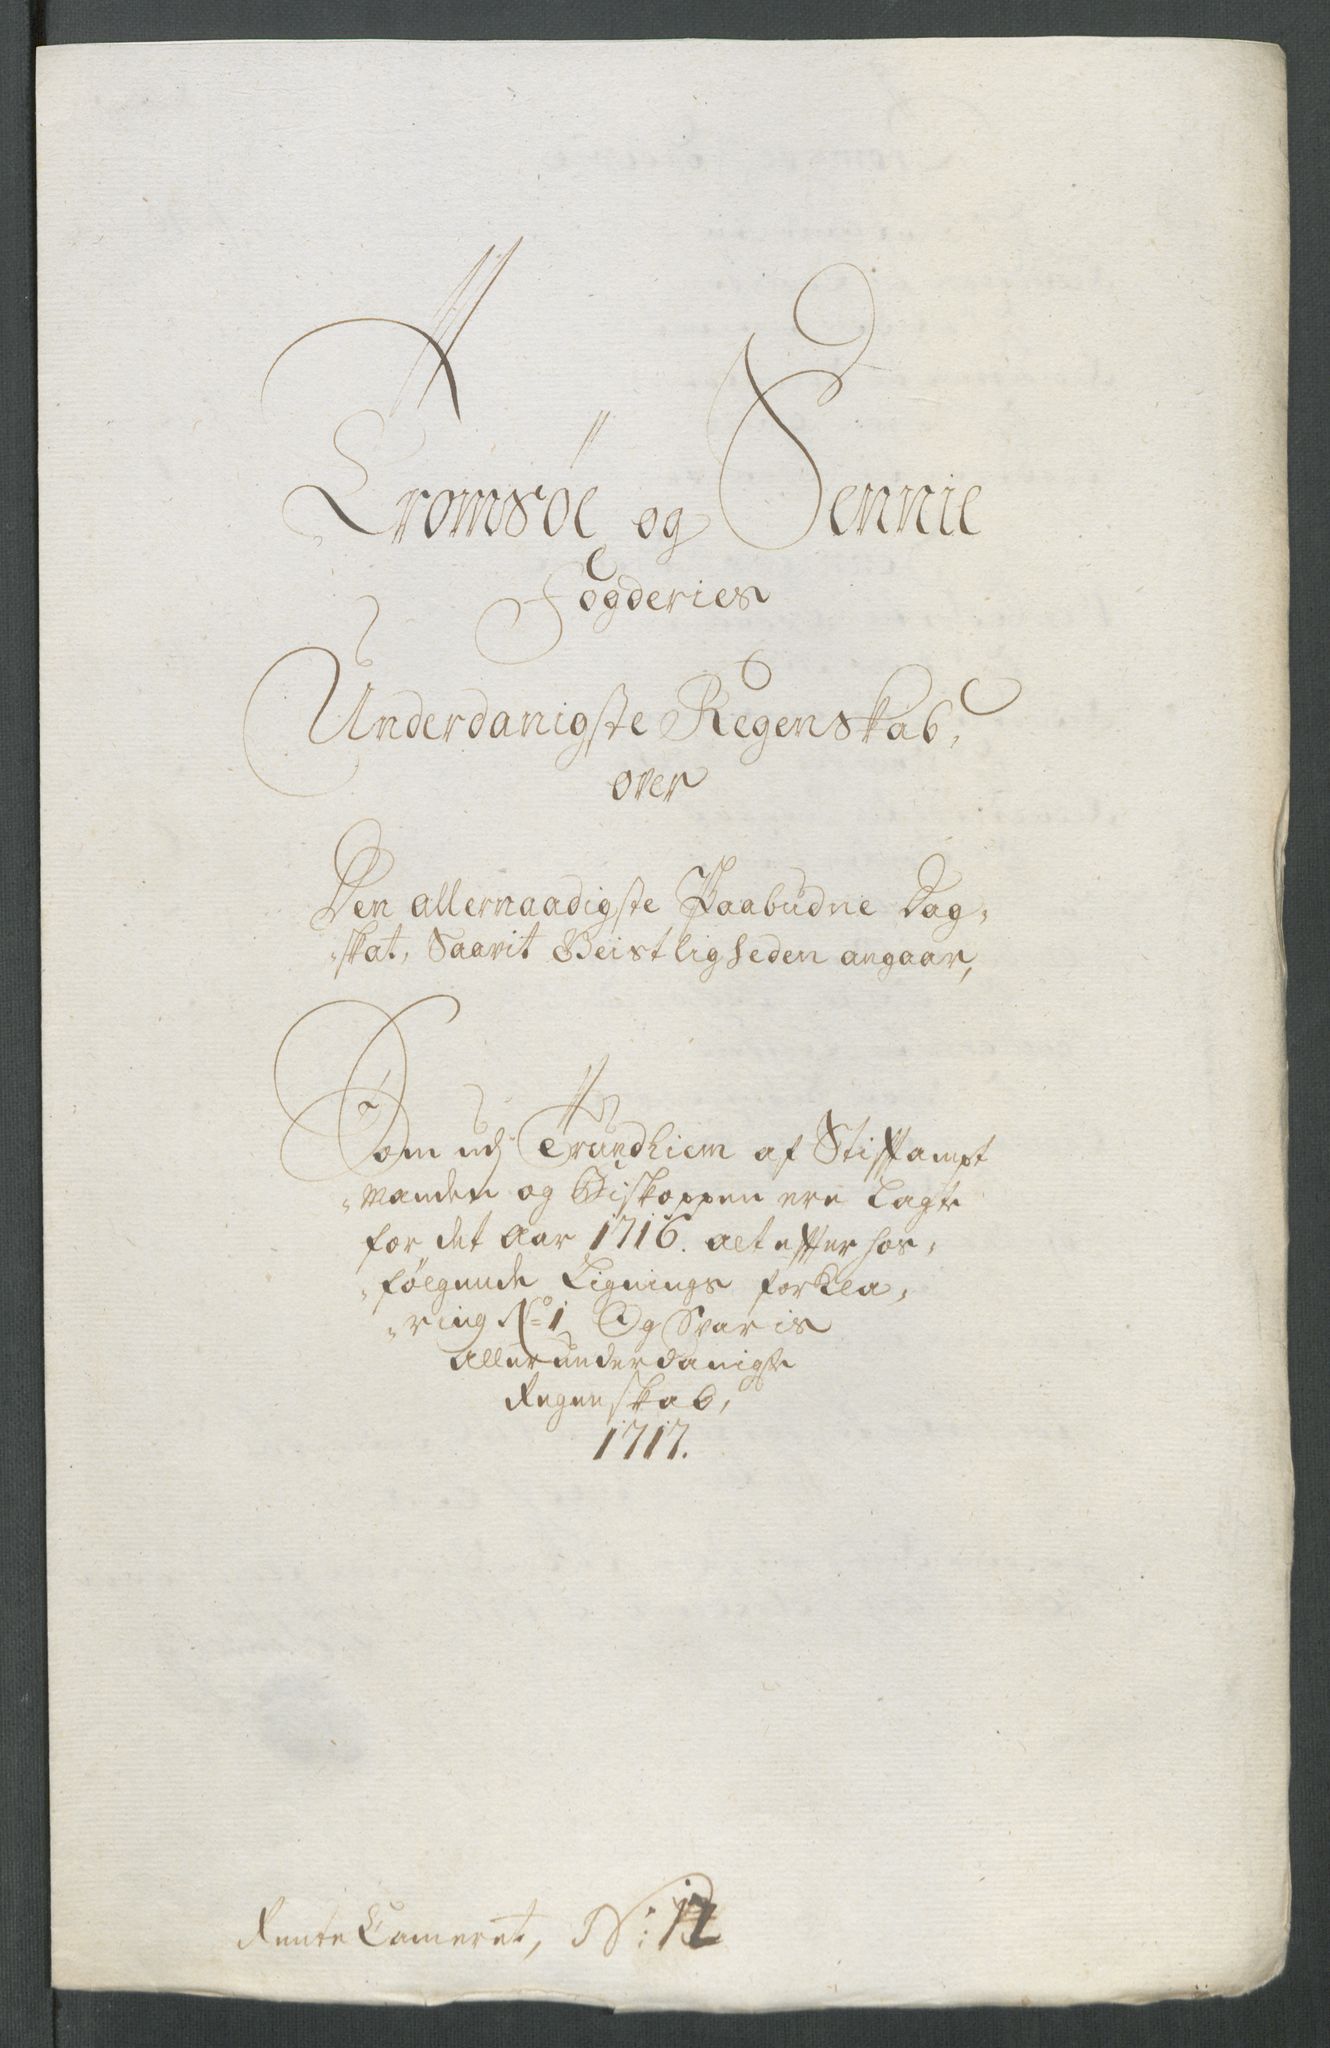 Tromsøe og Sennie
Fogderies
Underdanigste Regenskab,
over
Den allernaadigste Paabudne Dag-
-skat, Saavit Geistligheden angaar,
Som udj Trundhiem af Stiftampt
-manden og Biskoppen ere Lagt
for det Aar 1716. alt efter hos-
-følgende Lignings forkla-
-ring No 1 Og Svaris
Allerunderdanigst
Regenskab,
1717.
Rente Cameret, N: 12